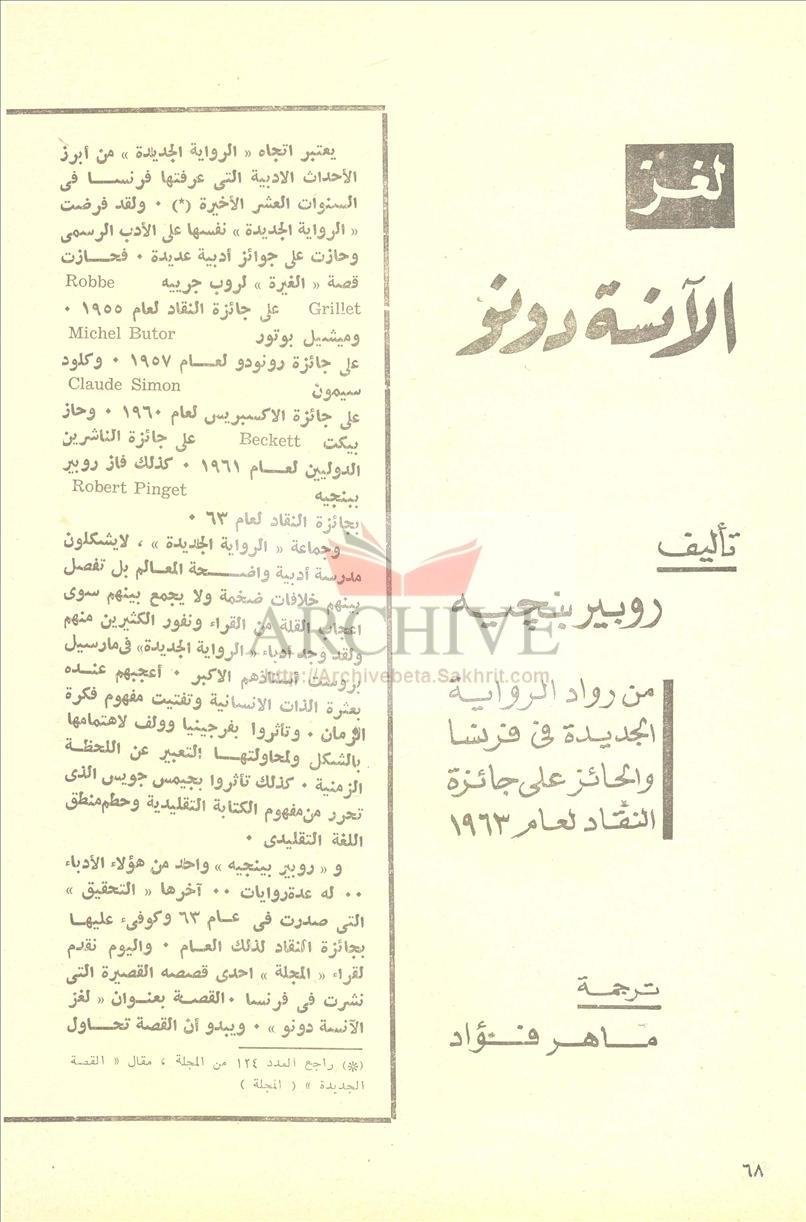 لغز
الآنسة دونو
تأليف
روبير بنجيه
من رواد الرواية
الجديدة في فرنسا
والحائز على جائزة
النقاد لعام ١٩٦٣
ترجمة
ماهر فؤاد
يعتبر اتجاه « الرواية الجديدة » من أبرز
الأحداث الادبية التى عرفتها فرنسا فى
السنوات العشر الأخيرة (*) ٠ ولقد فرضت
« الرواية الجديدة » نفسها على الأدب الرسمى
وحازت على جوائز أدبية عديدة ٠ فحازت
قصة « الغيرة » لروب جرييه Robbe
Grillet على جائزة النقاد لعام ١٩٥٥ ٠
وميشيل بوتور Michel Butor
على جائزة رونودو لعام ١٩٥٧ ٠ وكلود
سيمون Claude Simon
على جائزة الاكسبريس لعام ١٩٦٠ ٠ وحاز
بيكت Beckett على جائزة الناشرين
الدوليين لعام ١٩٦١ ٠ كذلك فاز روبير
بينجيه Robert Pinget
بجائزة النقاد لعام ٦٣ ٠
وجماعة « الرواية الجديدة » ، لايشكلون
مدرسة أدبية واضحة المعالم بل تفصل
بينهم خلافات ضخمة ولا يجمع بينهم سوى
اعجاب القلة من القراء ونفور الكثيرين منهم
ولقد وجد أدباء « الرواية الجديدة » فى مارسيل
بروست أستاذهم الاكبر ٠ أعجبهم عنده
بعثرة الذات الانسانية وتفتيت مفهوم فكرة
الزمان ٠ وتأثروا بفرجينيا وولف لاهتمامها
بالشكل ولمحاولتها التعبير عن اللحظة
الزمنية ٠ كذلك تأثروا بجيمس جويس الذى
تحرر من مفهوم الكتابة التقليدية وحطم منطق
اللغة التقليدى ٠
و « روبير بينجيه » واحد من هؤلاء الأدباء
٠٠ له عدة روايات ٠٠ آخرها « التحقيق »
التى صدرت فى عام ٦٣ وكوفىء عليها
بجائزة النقاد لذلك العام ٠ واليوم نقدم
لقراء « المجلة » احدى قصصه القصيرة التى
نشرت فى فرنسا ٠ القصة بعنوان « لغز
الآنسة دونو » ٠ ويبدو أن القصة تحاول
(*) راجع العدد ١٢٤ من المجلة ، مقال « القصة
الجديدة » ( المجلة )
ARCHIVE
http://Archivebeta.Sakhrit.com
٦٨